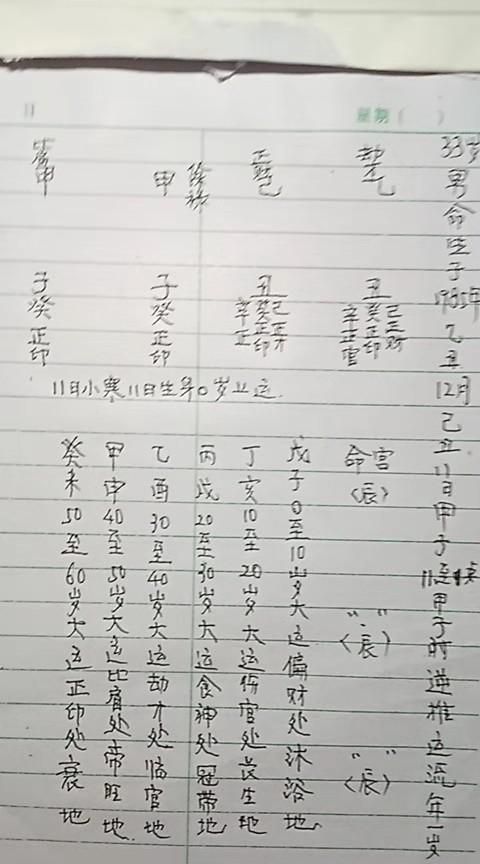 11
星期( )
33岁男命生于1985年乙丑12月己丑11日甲子11至1点甲子时逆推运流年一岁
劫才乙
正财己
甲
甲
丑
己癸辛
正财正印正官
丑
己癸辛
正才正印正
子
癸
正印
子
癸
正印
11日小寒11日生身0岁上运.
命宫
〈辰〉
〈辰〉
〈辰〉
戊子0至10岁大运偏财处沐浴地
丁亥10至20岁大运伤官处长生地
丙戌20至30岁大运食神处冠带地
乙酉30至40岁大运劫才处临官地
甲申40至50岁大运比肩处帝旺地
癸未50至60岁大运正印处衰地